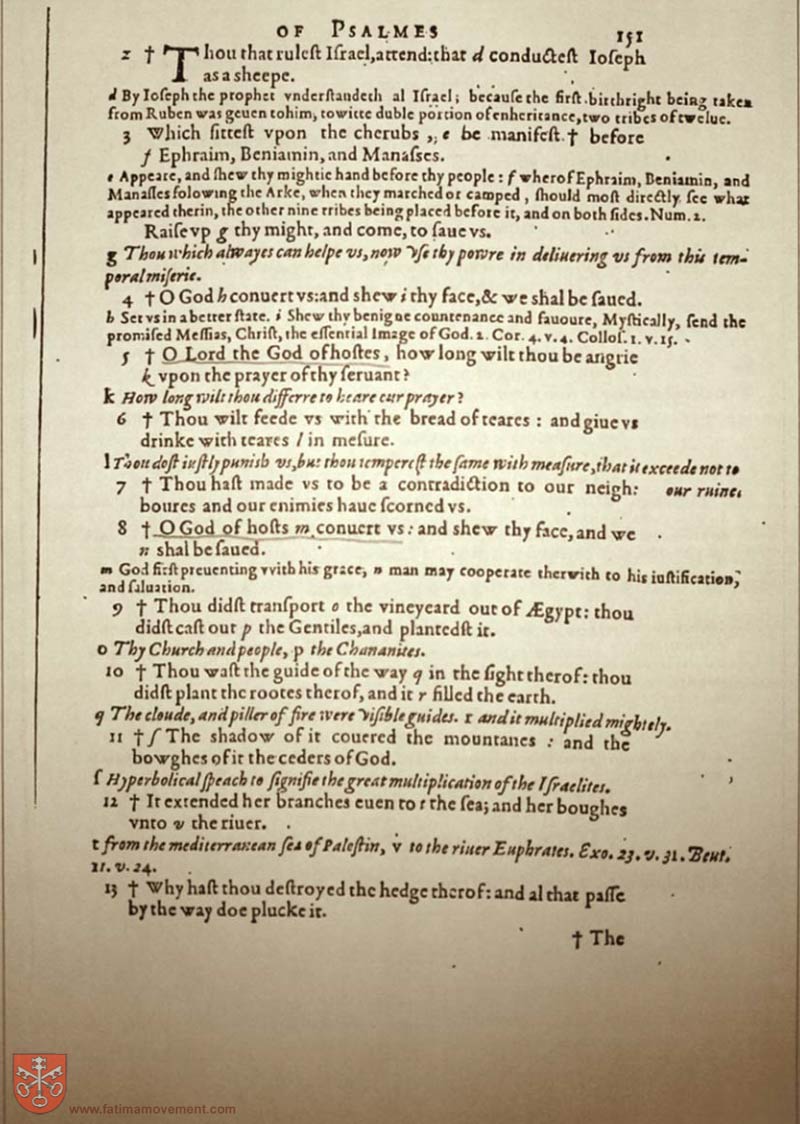 OF PSALMES 151
2 † Thou that rulest Israel,attend:that d conductest Ioseph
as a sheepe.
d By Ioseph the prophet vnderstandeth al Israel; because the first birthright being taken
from Ruben was geuen tohim, towitte duble portion of enheritance,two tribes of twelue.
3 Which sittest vpon the cherubs ,; e be manifest.† before
f Ephraim, Beniamin, and Manasses.
e Appeare, and shew thy mightie hand before thy people : f wherof Ephraim, Beniamin, and
Manasses folowing the Arke, when they marched or camped , should most directly see what
appeared therin, the other nine tribes being placed before it, and on both sides. Num. 2.
Raise vp g thy might, and come, to saue vs.
g Thou which alwayes can helpe vs, now vse thy powre in deliuering vs from this tem-
poral miserie.
4 † O God h conuert vs:and shew i thy face,& we shal be saued.
h Set vs in a better state. i Shew thy benigne countenance and fauoure, Mystically, send the
promised Messias, Christ, the essential Image of God. 2. Cor. 4. v. 4. Collos. 1. v. 15.
5 † O Lord the God of hostes, how long wilt thou be angrie
k vpon the prayer of thy seruant?
k How long wilt thou differre to heare our prayer?
6 † Thou wilt feede vs with the bread of teares : and giue vs
drinke with teares l in mesure.
l Thou dost iustly punish vs, but thou temperest the same with measure, that it exceede not to
7 † Thou hast made vs to be a contradiction to our neigh: our ruine:
boures and our enimies haue scorned vs.
8 † O God of hosts m conuert vs : and shew thy face, and we
n shal be saued.
m God first preuenting vvith his grace, n man may cooperate therwith to his iustification,
and saluation.
9 † Thou didst transport o the vineyeard out of Ægypt: thou
didst cast out p the Gentiles,and plantedst it.
o Thy Church and people, p the Chananites.
10 † Thou wast the guide of the way q in the sight therof: thou
didst plant the rootes therof, and it r filled the earth.
q The cloude, and piller of fire were visible guides. r and it multiplied mightely.
11 † s The shadow of it couered the mountanes : and the
bowghes of it the ceders of God.
s Hyperbolical speach to signifie the great multiplication of the Israelites.
12 † It extended her branches euen to t the sea; and her boughes
vnto v the riuer.
t from the mediterranean sea of Palestin, v to the riuer Euphrates. Exo. 23. v. 31. Deut.
11. v. 24.
13 † Why hast thou destroyed the hedge therof: and al that passe
by the way doe plucke it.
† The
www.fatimamovement.com